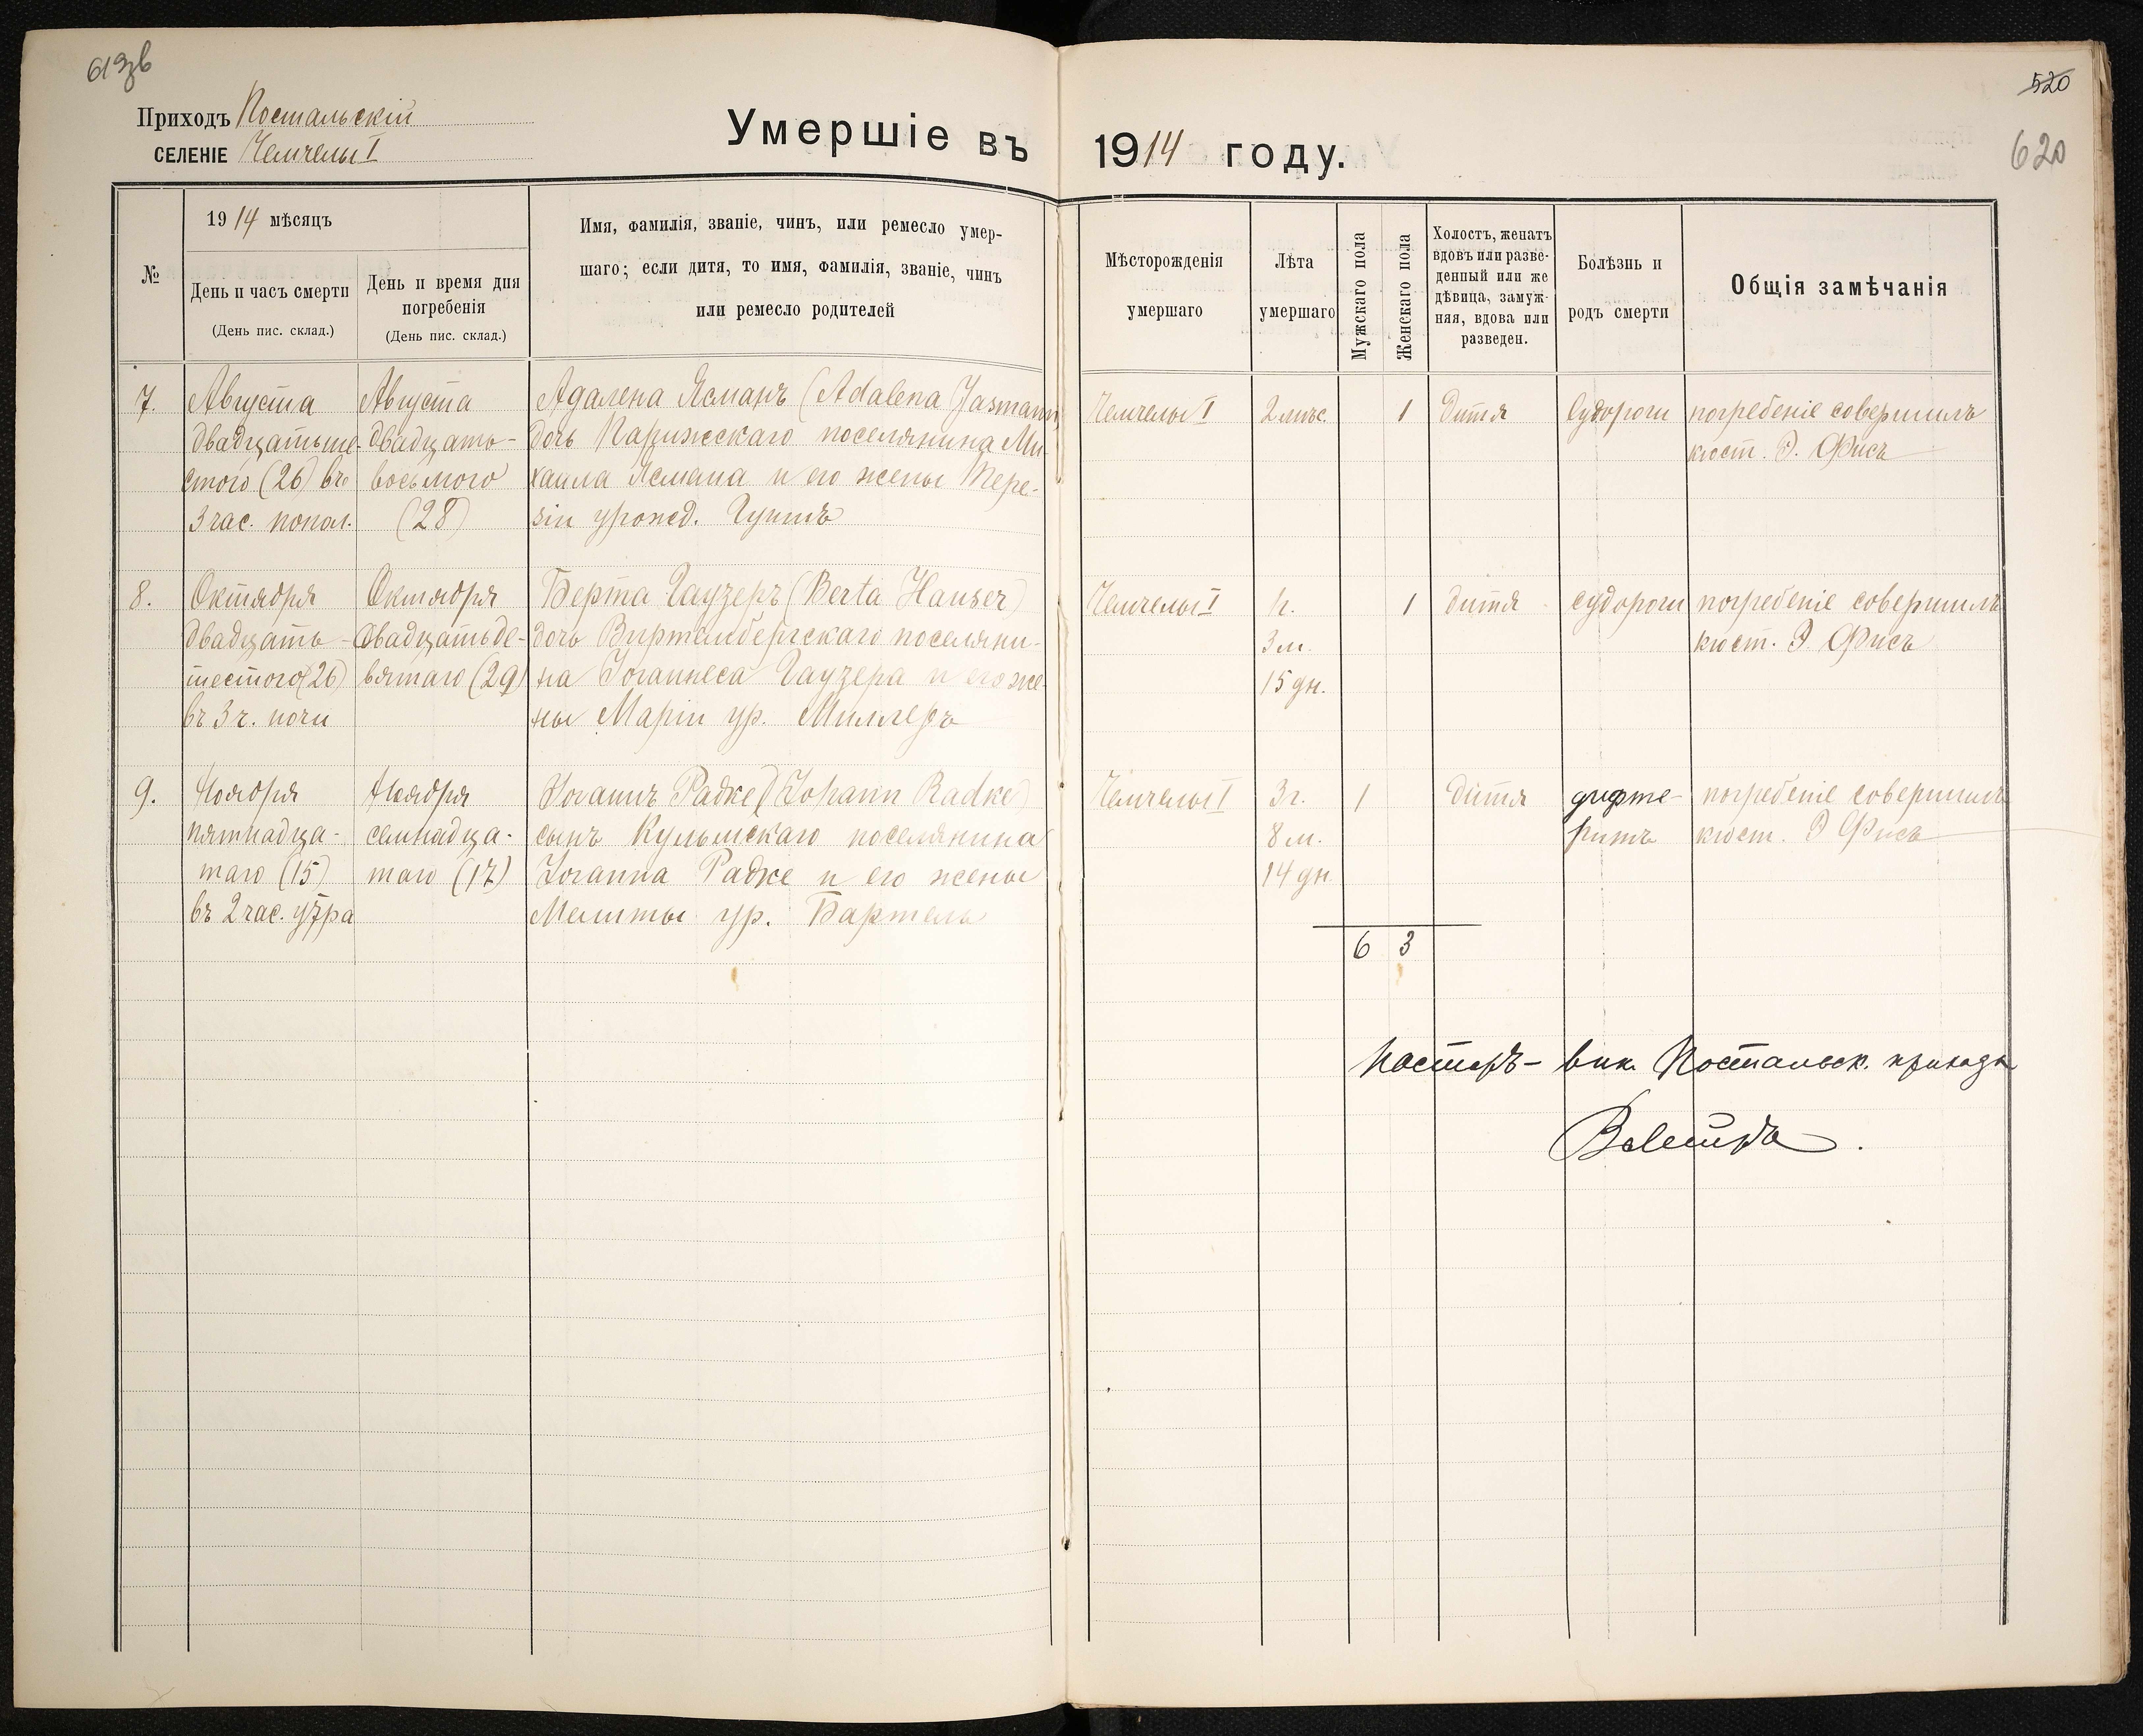 613в
520
620
Приходъ Постальскій
СЕЛЕНІЕ Чемчелы I
Умершіе въ 1914 году.
№
1914 мѣсяцъ
День и часъ смерти
(День пис. склад.)
День и время дня
погребенія
(День пис. склад.)
Имя, фамилія, званіе, чинъ, или ремесло умер-
шаго; если дитя, то имя, фамилія, званіе, чинъ
или ремесло родителей
Мѣсторожденія
умершаго
Лѣта
умершаго
Мужскаго пола
Женскаго пола
Холостъ, женатъ
вдовъ или разве-
денный или же
дѣвица, замуж-
няя, вдова или
разведен.
Болѣзнь и
родъ смерти
Общія замѣчанія
7.
Августа
двадцатьше-
стого (26) въ
3 час. попол.
Августа
двадцать-
восьмого
(28)
Адалена Ясманъ (Adalena Jasmann)
дочь Парижскаго поселянина Ми-
хаила Ясмана и его жены Тере-
зіи урожд.
Чемчелы I
2 мѣс.
1
Дитя
Судороги
погребеніе совершилъ
кюст. Э. Фисъ
8.
Октября
двадцать-
шестого (26)
въ 3 ч. ночи
Октября
двадцатьде-
вятаго (29)
Берта Гаузеръ (Berta Hauser)
дочь Виртембергскаго поселяни-
на Іоганнеса Гаузера и его же-
ны Маріи ур. Миллеръ
Чемчелы I
1г.
3 м.
15 дн.
1
Дитя
судороги
погребеніе совершилъ
кюст. Э. Фисъ
9.
Ноября
пятнадца-
таго (15)
въ 2 час. утра
Ноября
семнадца-
таго (17)
Іоганнъ Радке (Johann Radke)
сынъ Кульмскаго поселянина
Іоганна Радке и его жены
Мелиты ур. Бартель
Чемчелы I
3 г.
8 м.
14 дн
1
Дитя
дифте-
ритъ
погребеніе совершилъ
кюст. Э Фисъ
6 3
Пасторъ- вик. Постальск. прихода